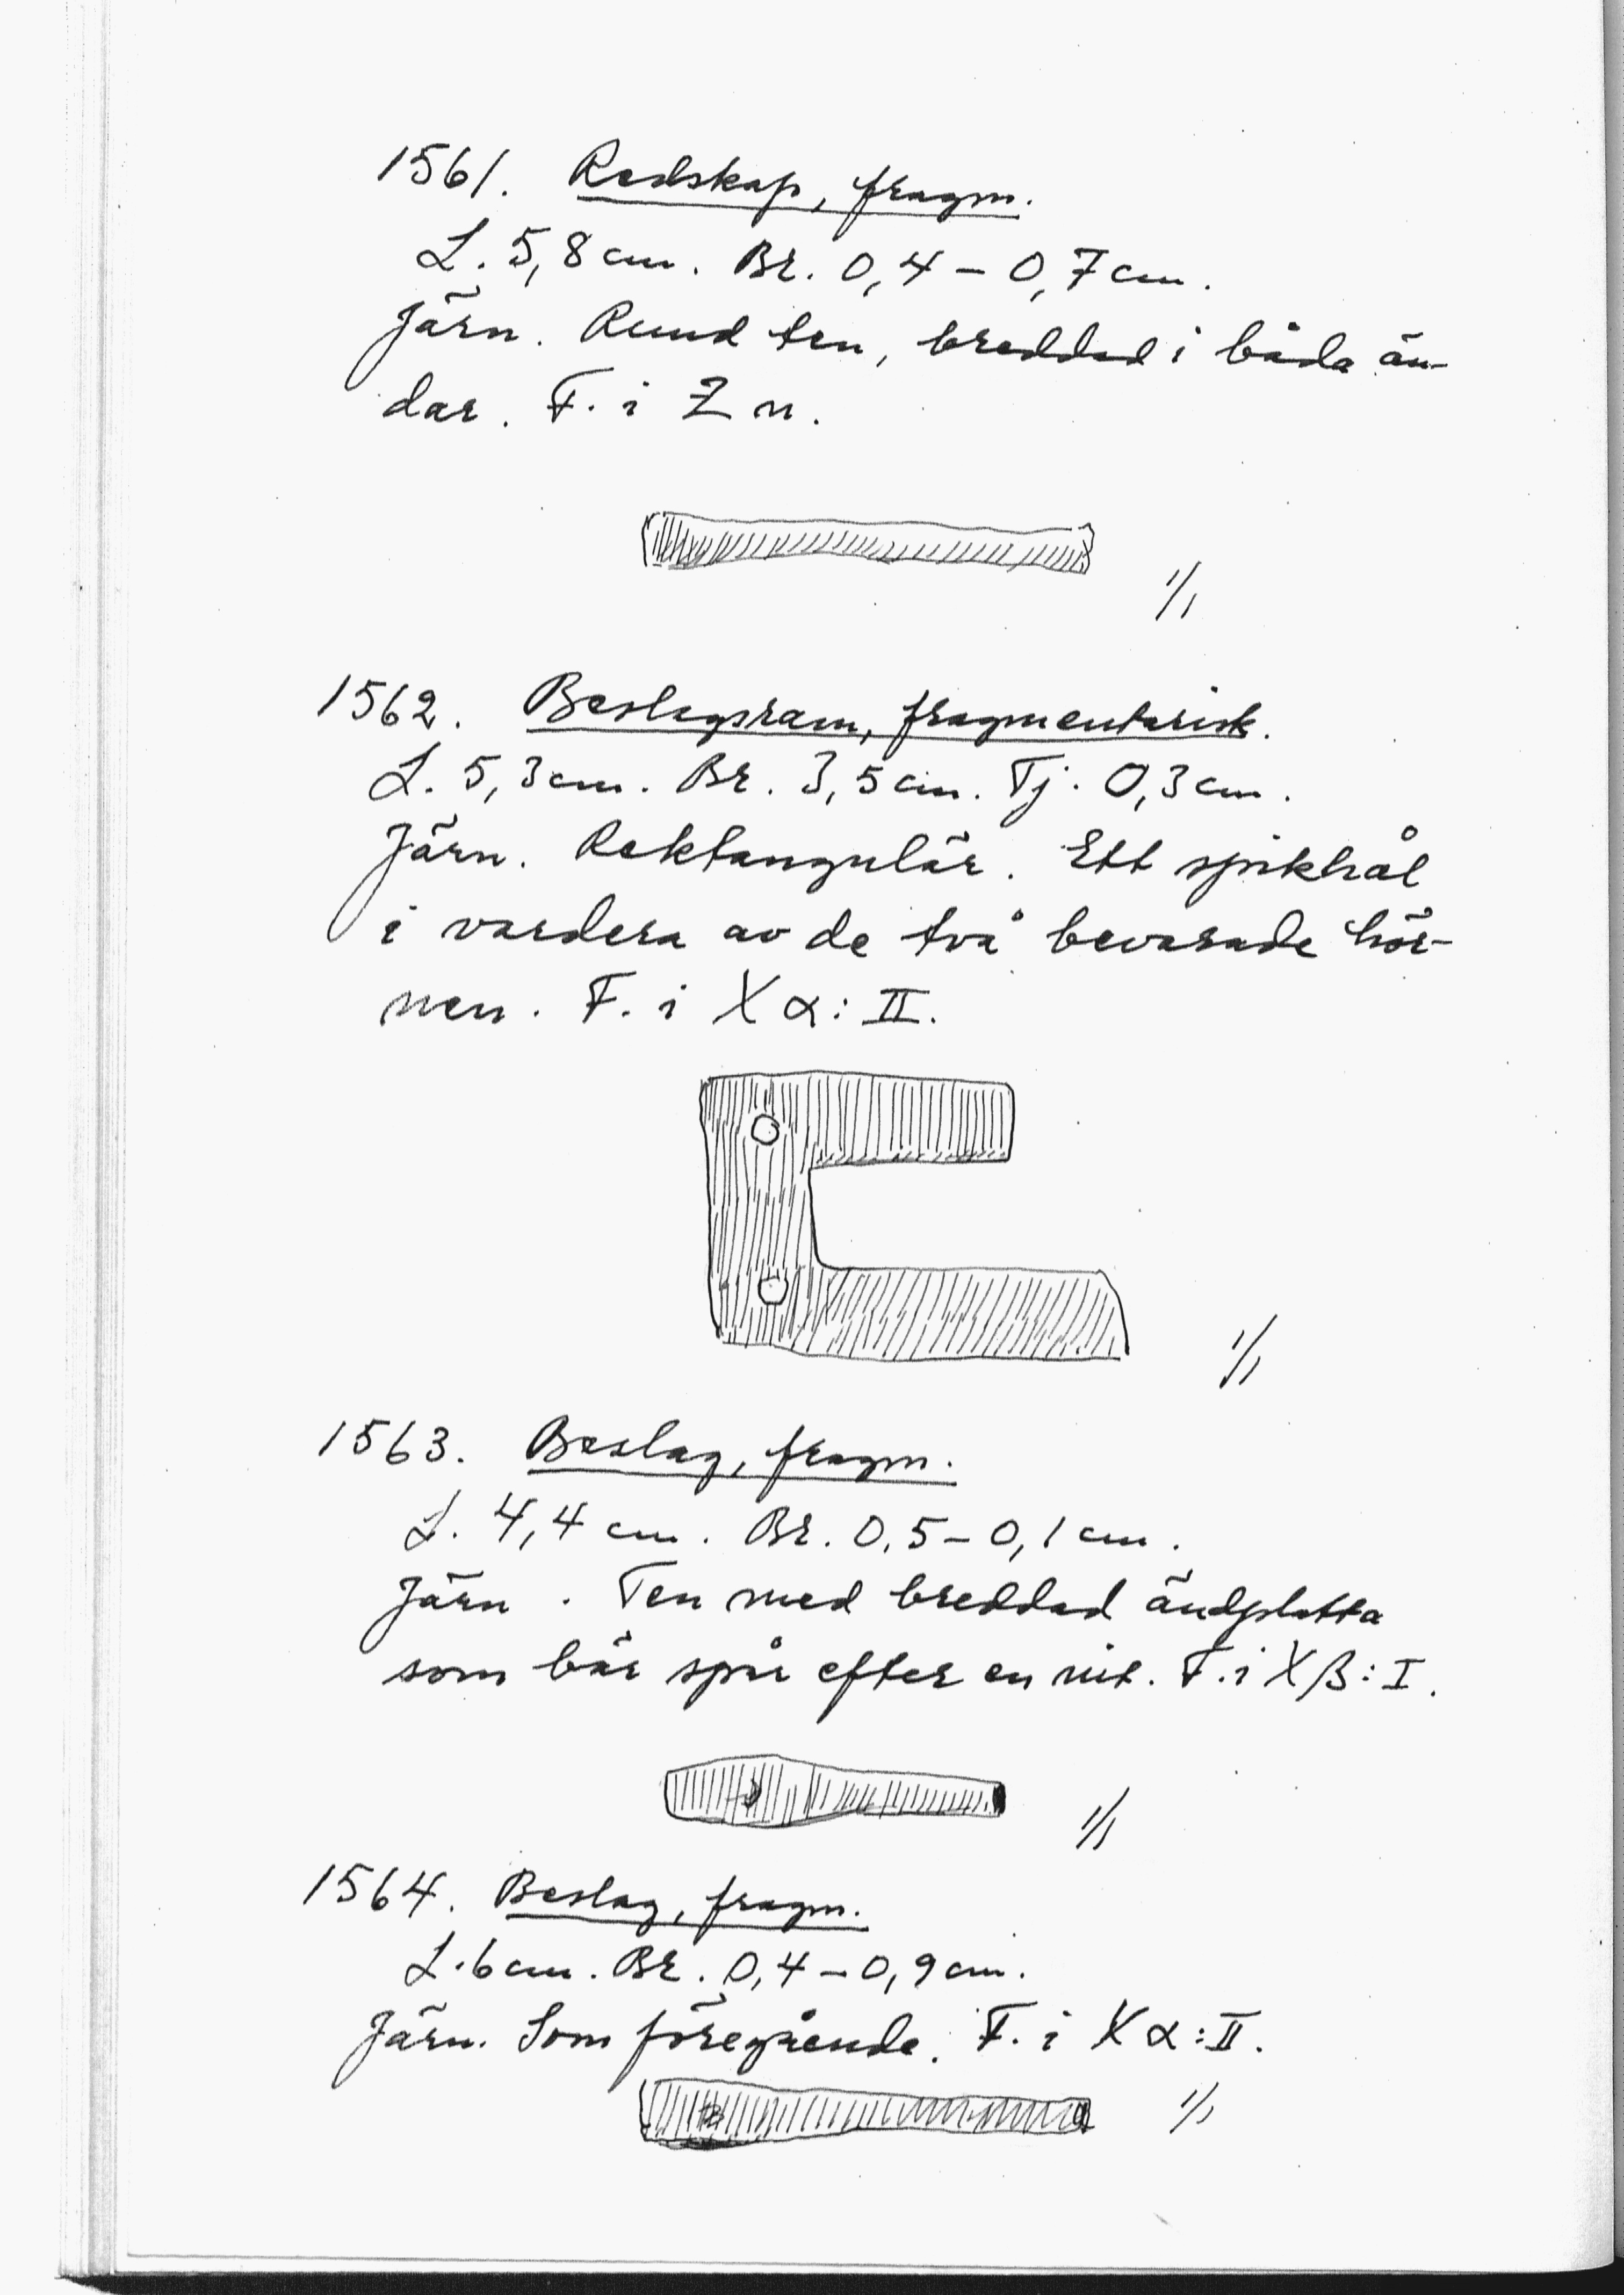 1561. Redskap, fragm.
L. 5,8 cm. Br. 0,4 – 0,7 cm.
Järn. Rund ten, breddad i båda än-
dar. F. i Z n.
1/1
1562. Beslagsram, fragmentarisk.
L. 5,3 cm. Br. 3,5 cm. Tj. 0,3 cm.
Järn. Rektangulär. Ett spikhål
i vardera av de två bevarade hör-
nen. F. i X α: II.
1/1
1563. Beslag, fragm.
L. 4,4 cm. Br. 0,5 – 0,1 cm.
Järn. Ten med breddad ändplatta
som bär spår efter en nit. F. i X β: I.
1/1
1564. Beslag, fragm.
L. 6 cm. Br. 0,4 – 0,9 cm.
Järn. Som föregående. F. i X α: II.
1/1